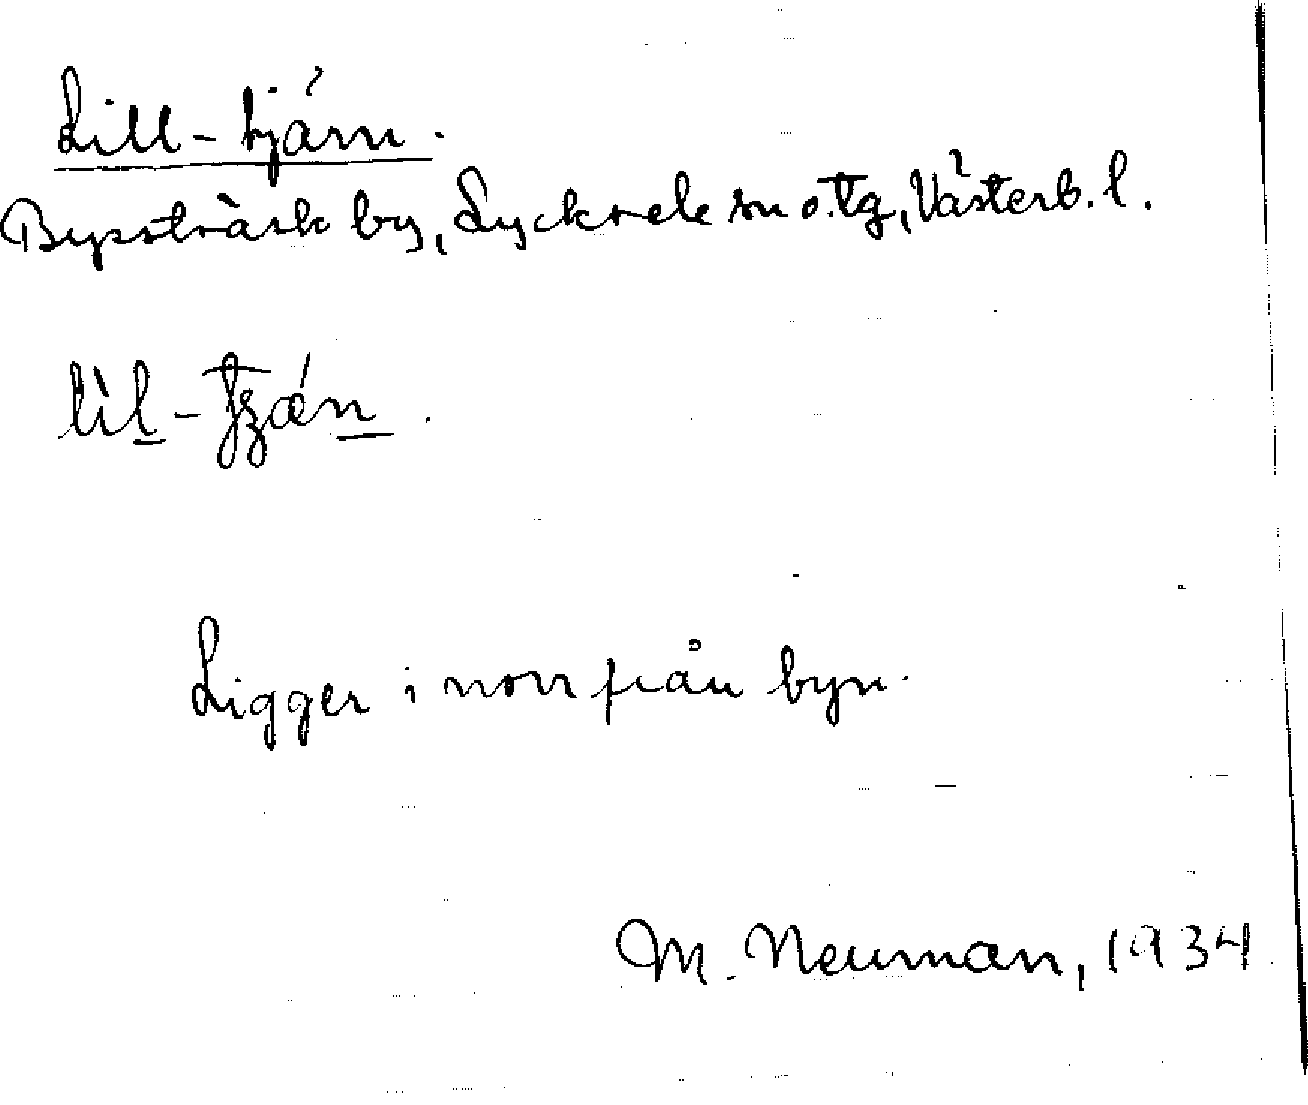 Lill-tjärn.
Bysträsk by, Lycksele sn o. tg, Västerb. l.
lìl-
Ligger i norr från byn.
M. Neuman, 1934